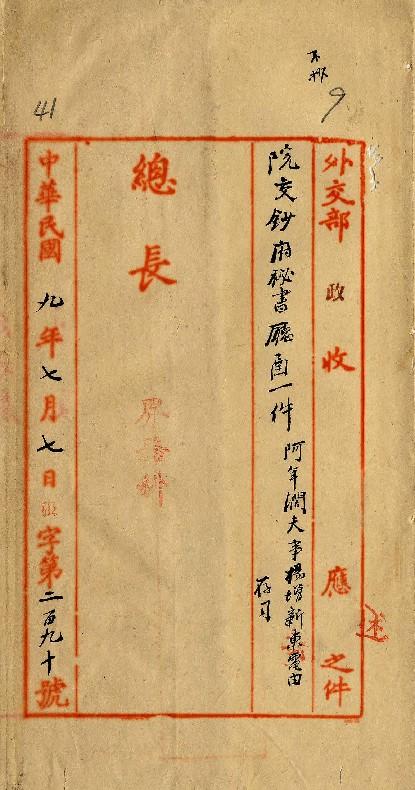 9
41
外交部政收應之件
院交鈔府秘書廳函一件 阿年闊夫事楊增新來電由
存司
總長
中華民國九年七月七日 字第二百九十號